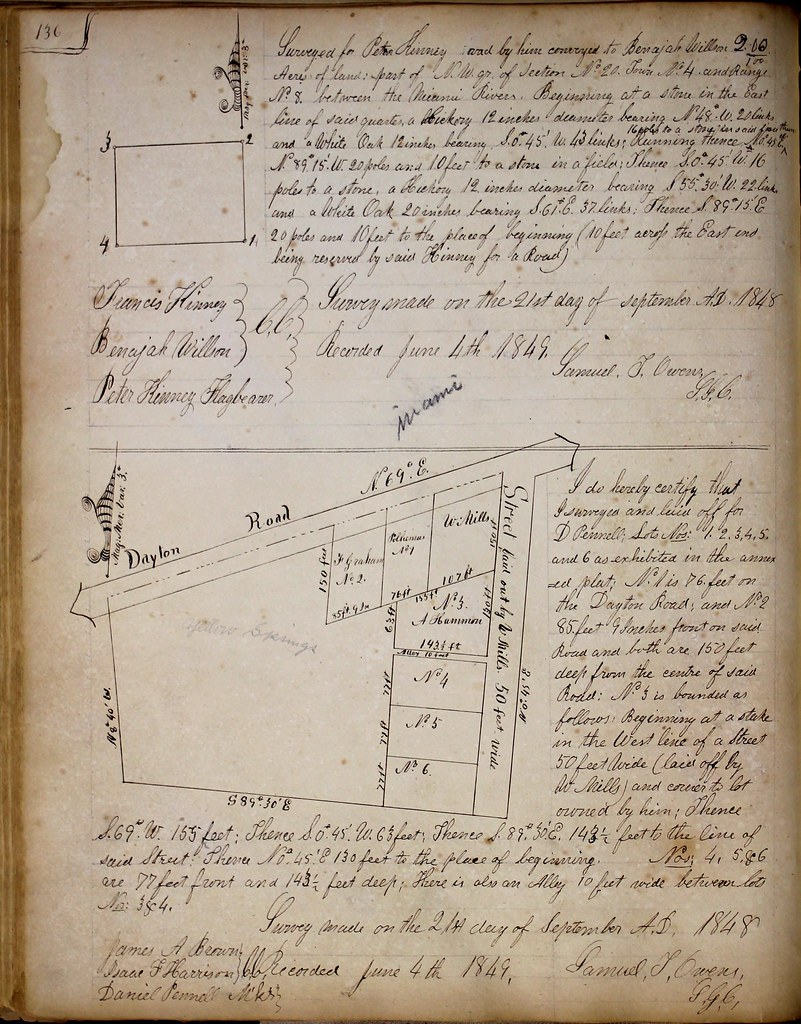 130
Surveyed for Peter Kinney and by him conveyed to Benajah Willson 2.00/100
Acres of land; part of N.W. qr. of Section No 20. Town. No 4. and Range
No 8. between the Miami Rivers. Beginning at a stone in the East
line of said quarter, a Hickory 12 inches diameter bearing No 48° W. 20 links
and a White Oak 12 inches bearing S.0° 45' W. 43 links; Running thence No. 45' E.
16 poles to a stone in said
No 89° 15' W. 20 poles and 10 feet to a stone in a field; Thence S.0° 45' W. 16
poles to a stone, a Hickory 12 inches diameter bearing S 55° 30' W. 22 links
and a White Oak 20 inches bearing S.61° E. 37 links; Thence S.89° 15' E
20 poles and 10 feet to the place of beginning (10 feet across the East end
being reserved by said Kinney for a Road)
3
2
4
1
Francis Kinney
Benajah Willson
Peter Kinney Flagbearer
C.C.
Survey made on the 21st day of september A.D. 1848
Recorded June 4th 1849.
Samuel. T. Owens,
S.G.C.
miami
Mag. Mer. Var. 3°
Dayton Road
N. 69° E.
Street laid out by W. Mills. 50 feet wide
150 feet
F. Graham
No 2.
No 1
W. Mills
150 ft
85 ft 9 In
76 ft
155 ft
107 ft
63 ft
No 3.
A Hammon
143½ ft
Alley 10 feet
No 4
No 5
No 6.
77 ft
77 ft
77 ft
Yellow Springs
N 8° 40' W.
S 89° 30' E
I do hereby certify that
I surveyed and laid off for
D Pennell; Lots Nos: 1. 2. 3. 4. 5.
and 6 as exhibited in the annex
=ed plat; No 1 is 76 feet on
the Dayton Road; and No 2
85 feet 9 Inches front on said
Road and both are 150 feet
deep from the centre of said
Road: No 3 is bounded as
follows: Beginning at a stake
in the West line of a Street
50 feet Wide (laid off by
W. Mills) and corner to lot
owned by him; Thence
S. 69° W. 155 feet; Thence S.0° 45' W. 63 feet; Thence S. 89° 30' E. 143½ feet to the line of
said Street: Thence No. 45' E 130 feet to the place of beginning. Nos; 4, 5. & 6
are 77 feet front and 143½ feet deep; There is also an Alley 10 feet wide between lots
No: 3 & 4.
Survey made on the 21st day of September A.D. 1848
James A Brown
Isaac F Harrison
Daniel Pennell Mkr
C.C.
Recorded June 4th 1849.
Samuel, T, Owens,
S,G,C,